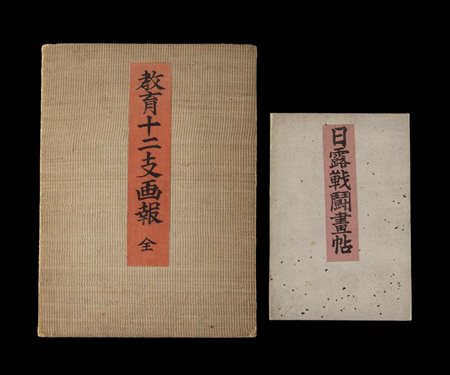 教育十二支画報 全
日露戰鬪畫帖